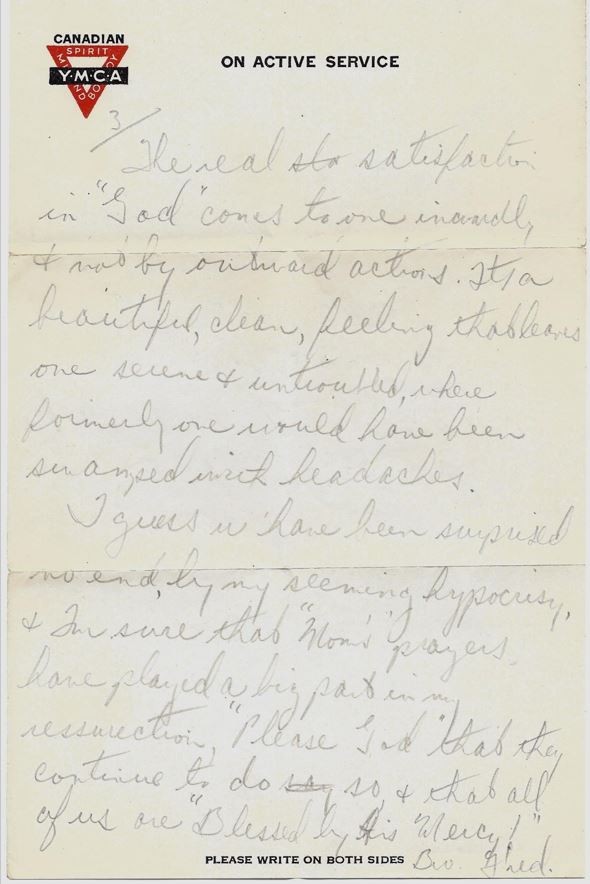 CANADIAN
SPIRIT
MIND
BODY
Y·M·C·A
ON ACTIVE SERVICE
3/
The real sta satisfaction
in "God" comes to one inwardly,
& not by outward actions. It's a
beautiful, clean, feeling that leaves
one serene & untroubled, where
formerly one would have been
swamped with headaches.
I guess u have been surprised
no end, by my seeming hypocrisy,
& I'm sure that "Mom's" prayers
have played a big part in my
ressurection, "Please God" that they
continue to do say so, & that all
of us are "Blessed by His Mercy!"
PLEASE WRITE ON BOTH SIDES
Bro. Fred.